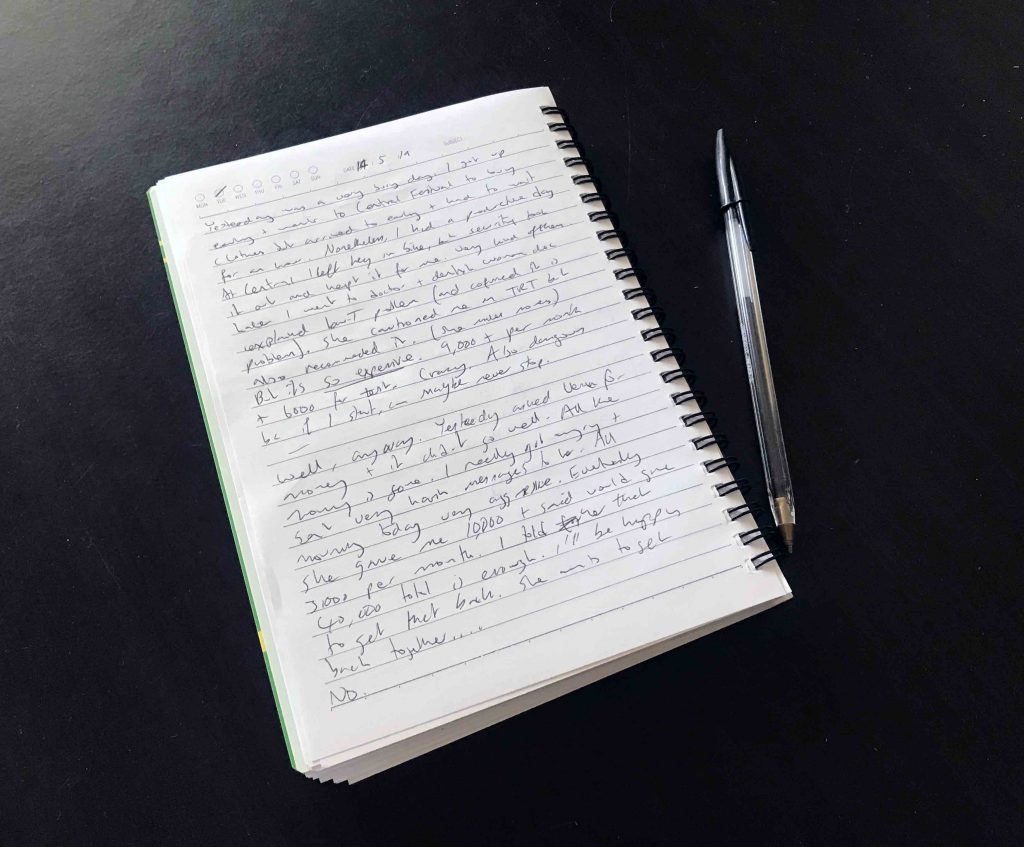 MON TUE WED THU FRI SAT SUN DATE 14.5.19 SUBJECT
Yesterday was a very busy day. I got up
early + went to Central Festival to buy
clothes but arrived to early + had to wait
for an hour. Nonetheless, I had a productive day
At Central I left key in bike, but security took
it out and kept it for me. Very kind of them
Later I went to doctor + dentist woman doc
explained problem (and confirmed it is
problem). She cautioned me on TRT but
Also recommended it. (She makes money)
But it's so expensive. 9,000 + per month
+ 6000 for test. Crazy. Also dangerous
bc if I start, can maybe never stop.
Well, anyway. Yesterday asked for
money + it didn't go well. All the
money is gone. I really got angry +
sent very harsh messages to her. All
morning today very aggressive. Eventually
she gave me 10000 + said would give
3000 per month. I told her that
40,000 total is enough. I'll be happy
to get that back. She wants to get
back together.....
No.